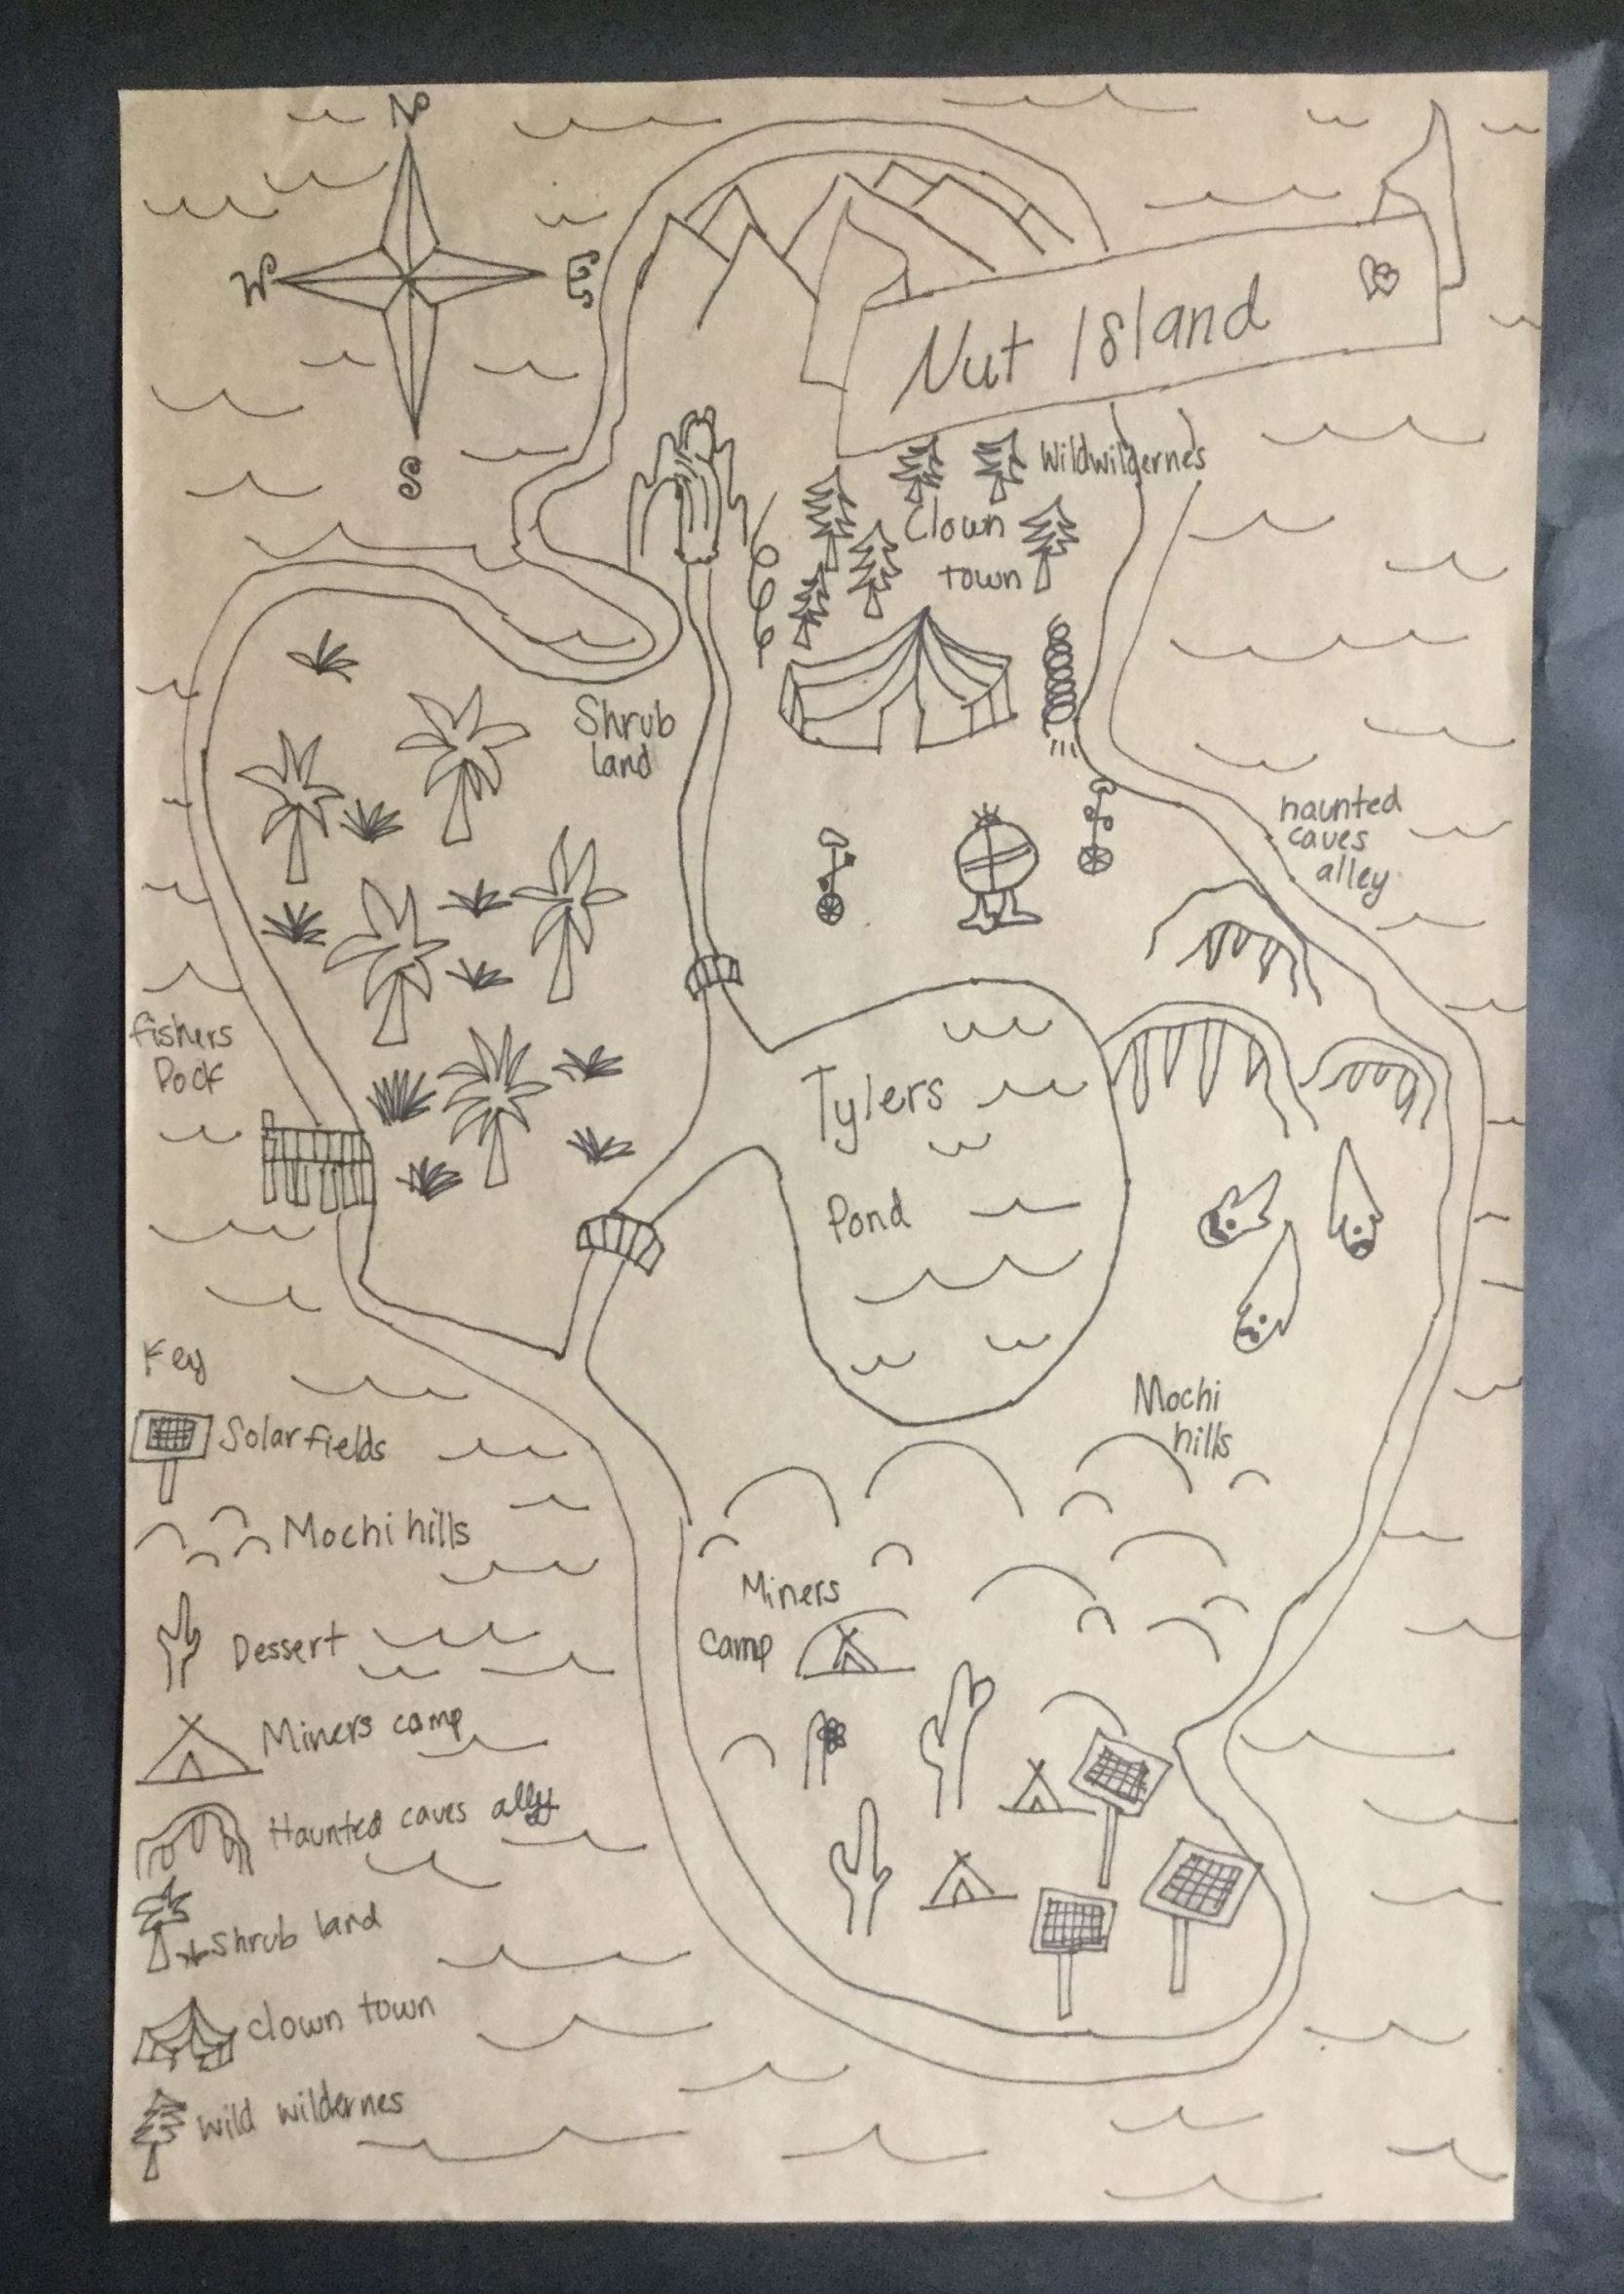 N
W
E
S
Nut Island
Wildwildernes
Clown
town
Shrub
land
haunted
caves
alley
fishers
Dock
Tylers
Pond
Mochi
hills
Miners
Camp
Key
Solar fields
Mochi hills
Dessert
Miners camp
Haunted caves ally
Shrub land
clown town
wild wildernes